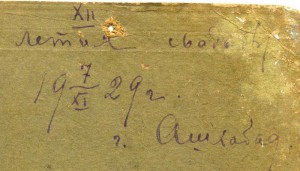 XII
летия свободы
19 7/XI 29 г.
г. Ашхабад.